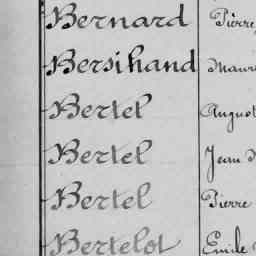 Bernard Pierre
Bersihand Mauri
Bertel August
Bertel Jean
Bertel Pierre
Bertelot Emile